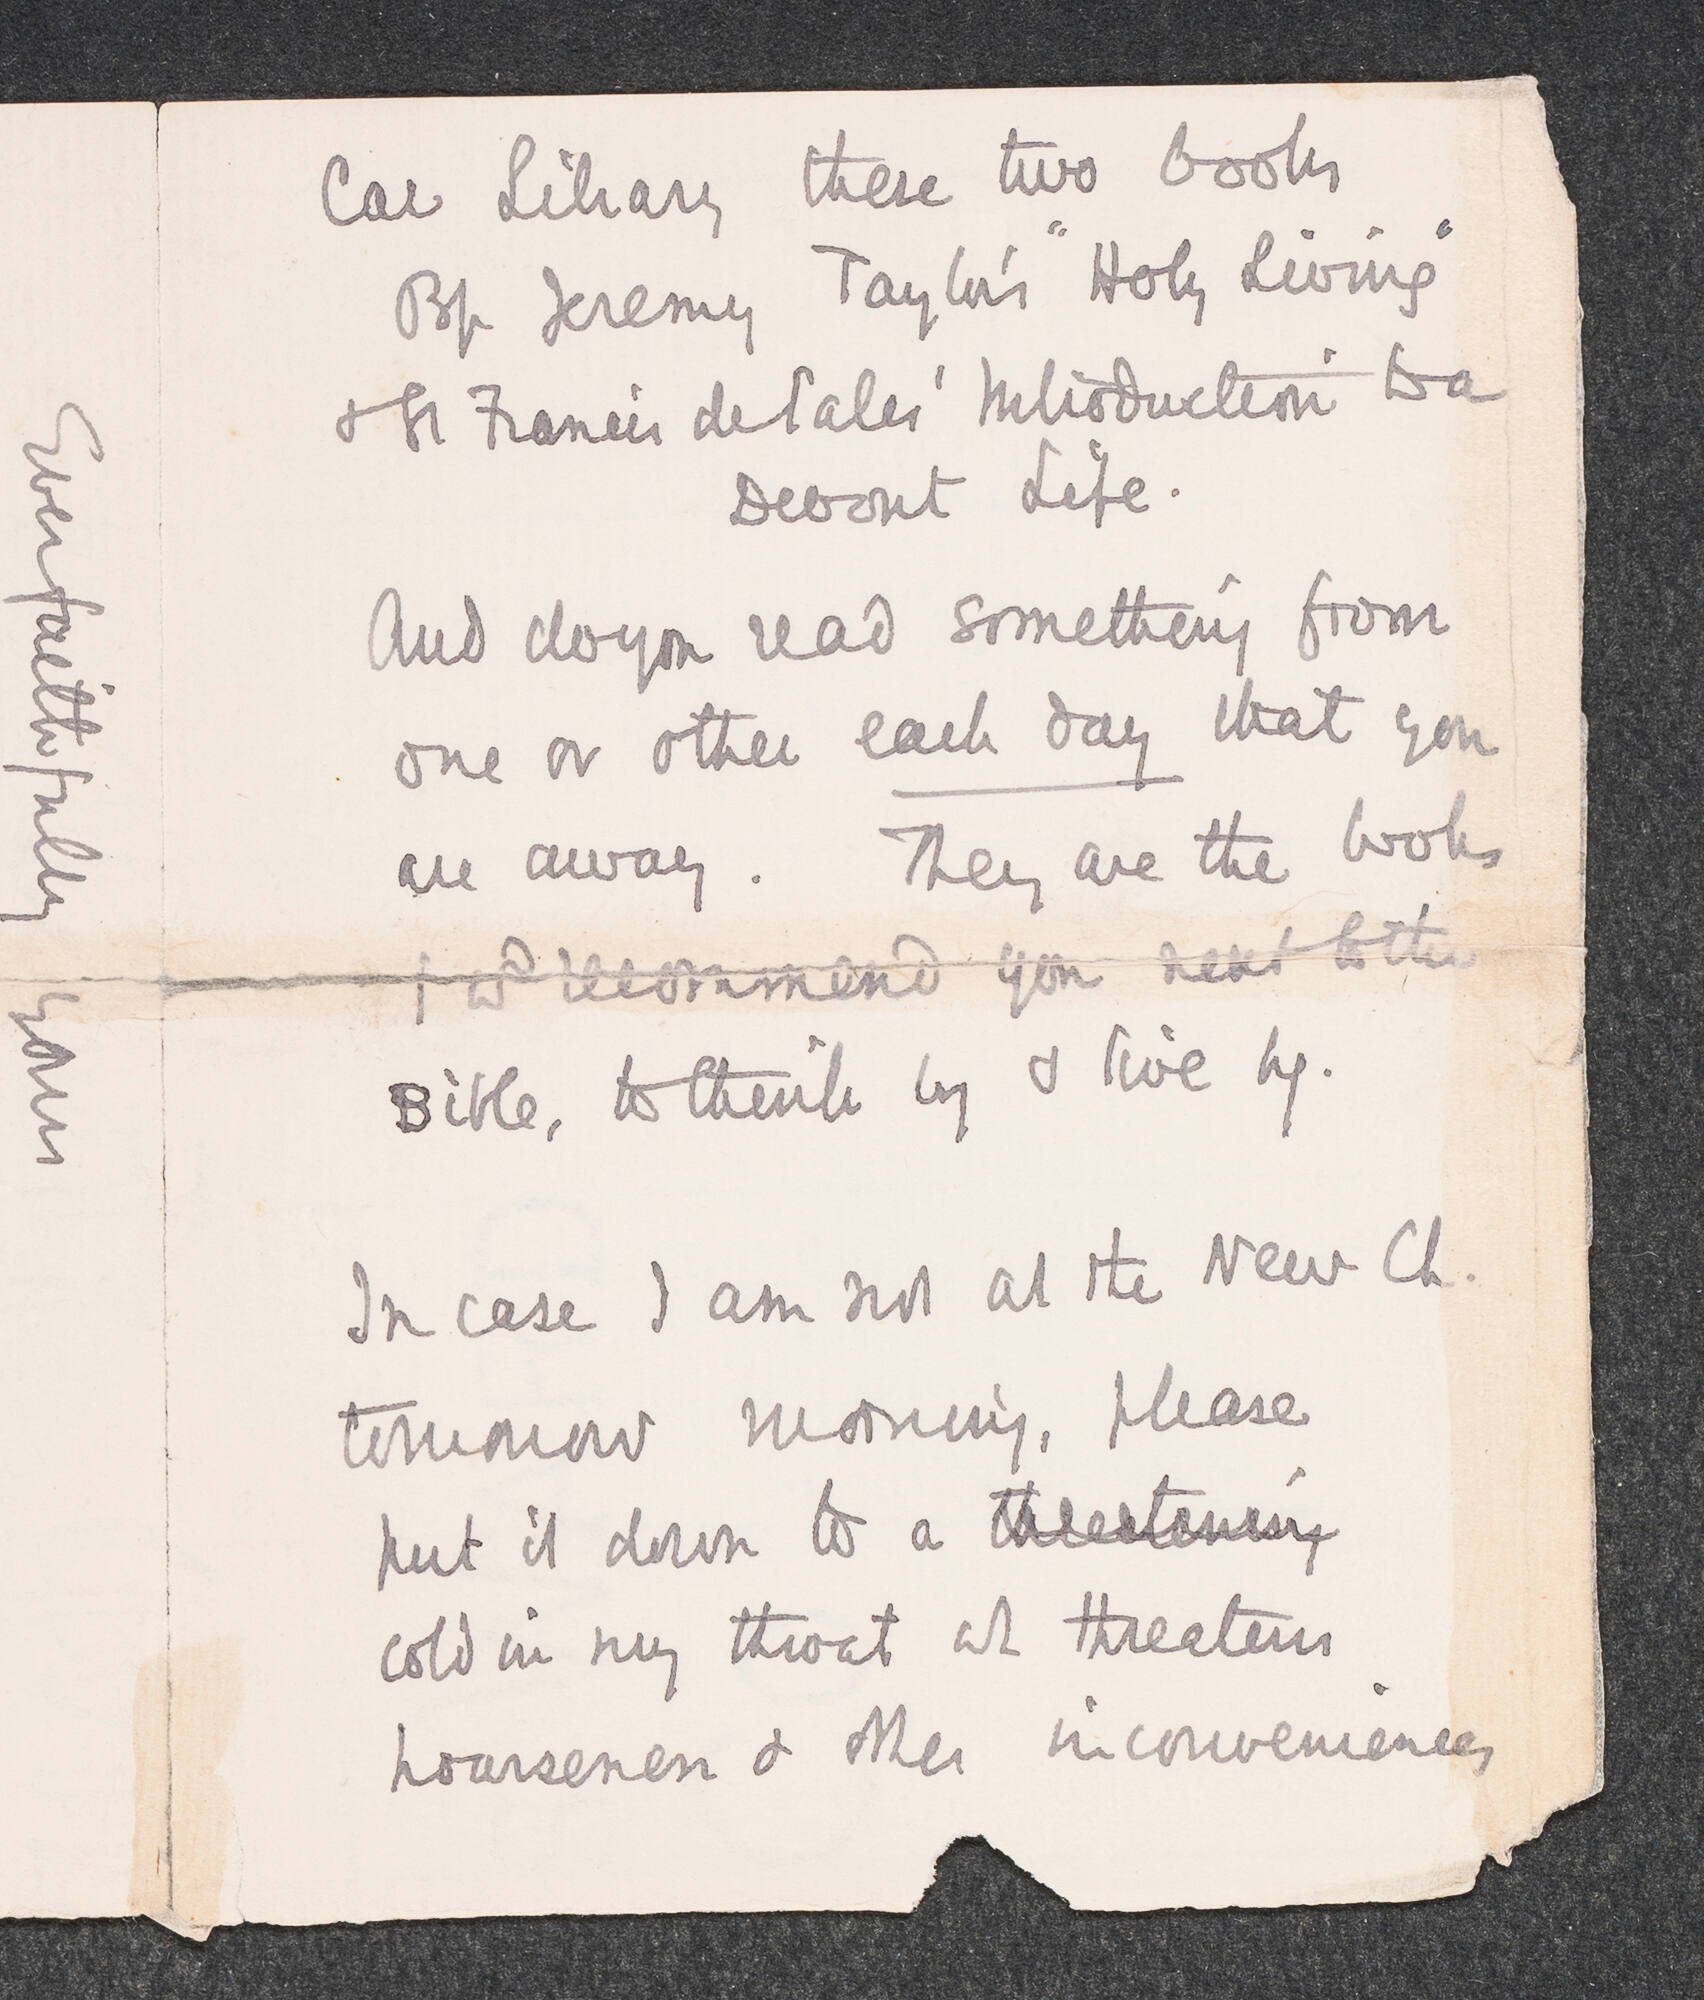 Car Library these two books
Bp Jeremy Taylor's "Holy Living"
& St Francis de Sales' Introduction to a
Devout Life.
And do you read something from
one or other each day that you
are away. They are the books
I wd recommend you next to the
Bible, to think by & live by.
In case I am not at the New Ch.
tomorrow morning, please
put it down to a threatening
cold in my throat wh threatens
hoarseness & other inconveniences
Ever faithfully yours